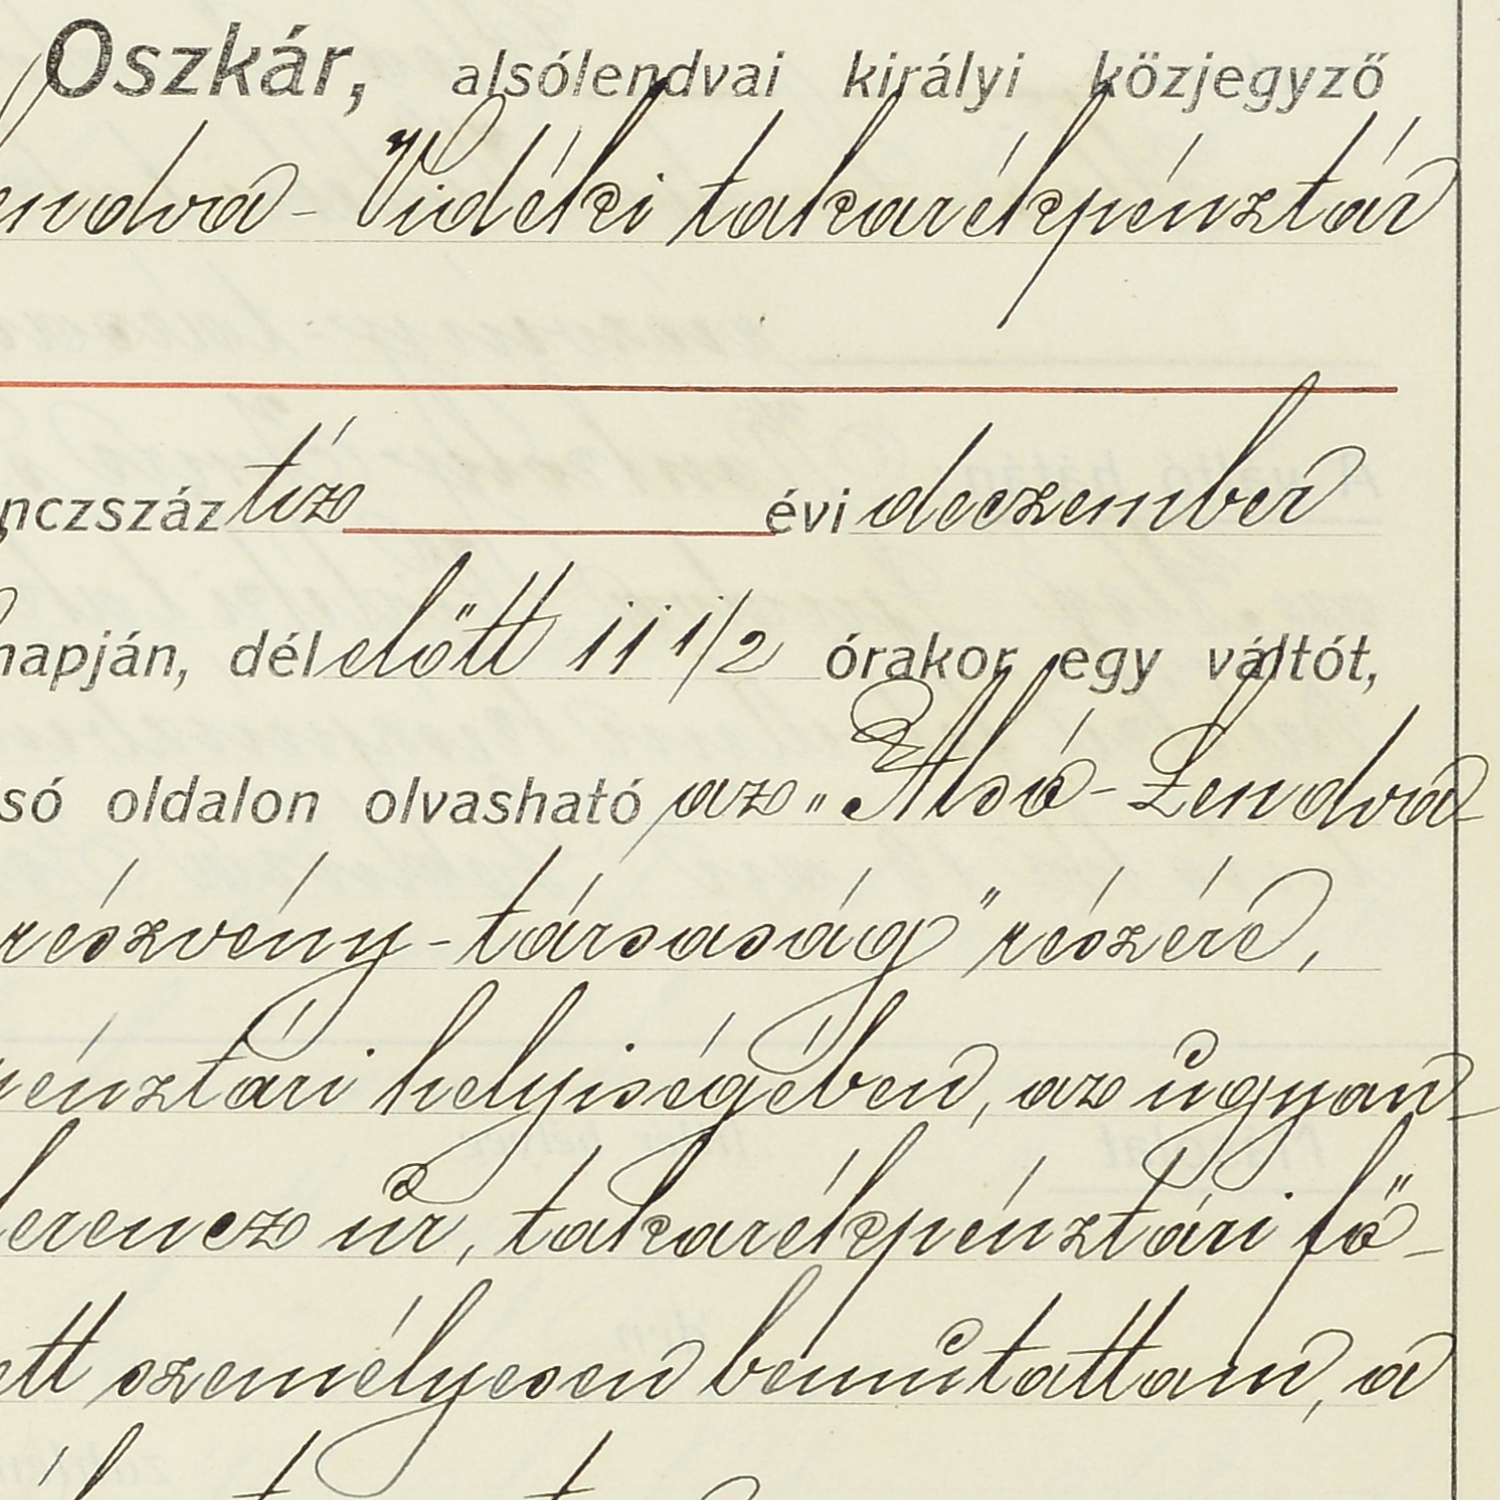 Oszkár, alsólendvai királyi közjegyző
endva - Vidéki takarékpénztár
nczszáz tíz évi deczember
napján, délelőtt 11 1/2 órakor egy váltót,
só oldalon olvasható az „Alsó-Lendva-
részvény-társaság" részére,
pénztári helyiségében, az ugyan-
erencz úr, takarékpénztári fő-
ett személyesen bemutattam, a